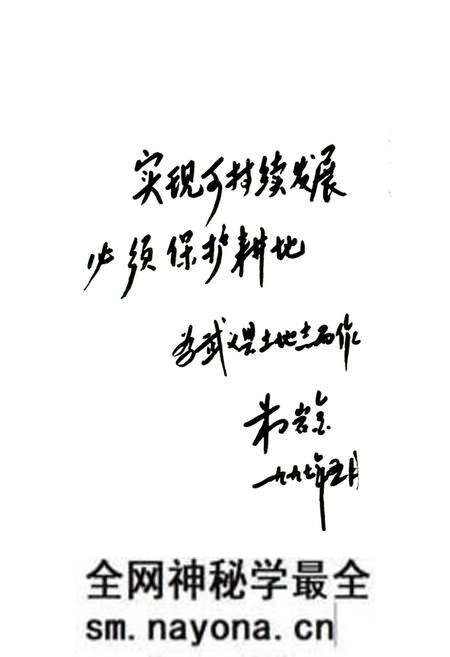 实现可持续发展
必须保护耕地
为武义县土地志而作
朱岩金
一九九七年五月
全网神秘学最全
sm.nayona.cn